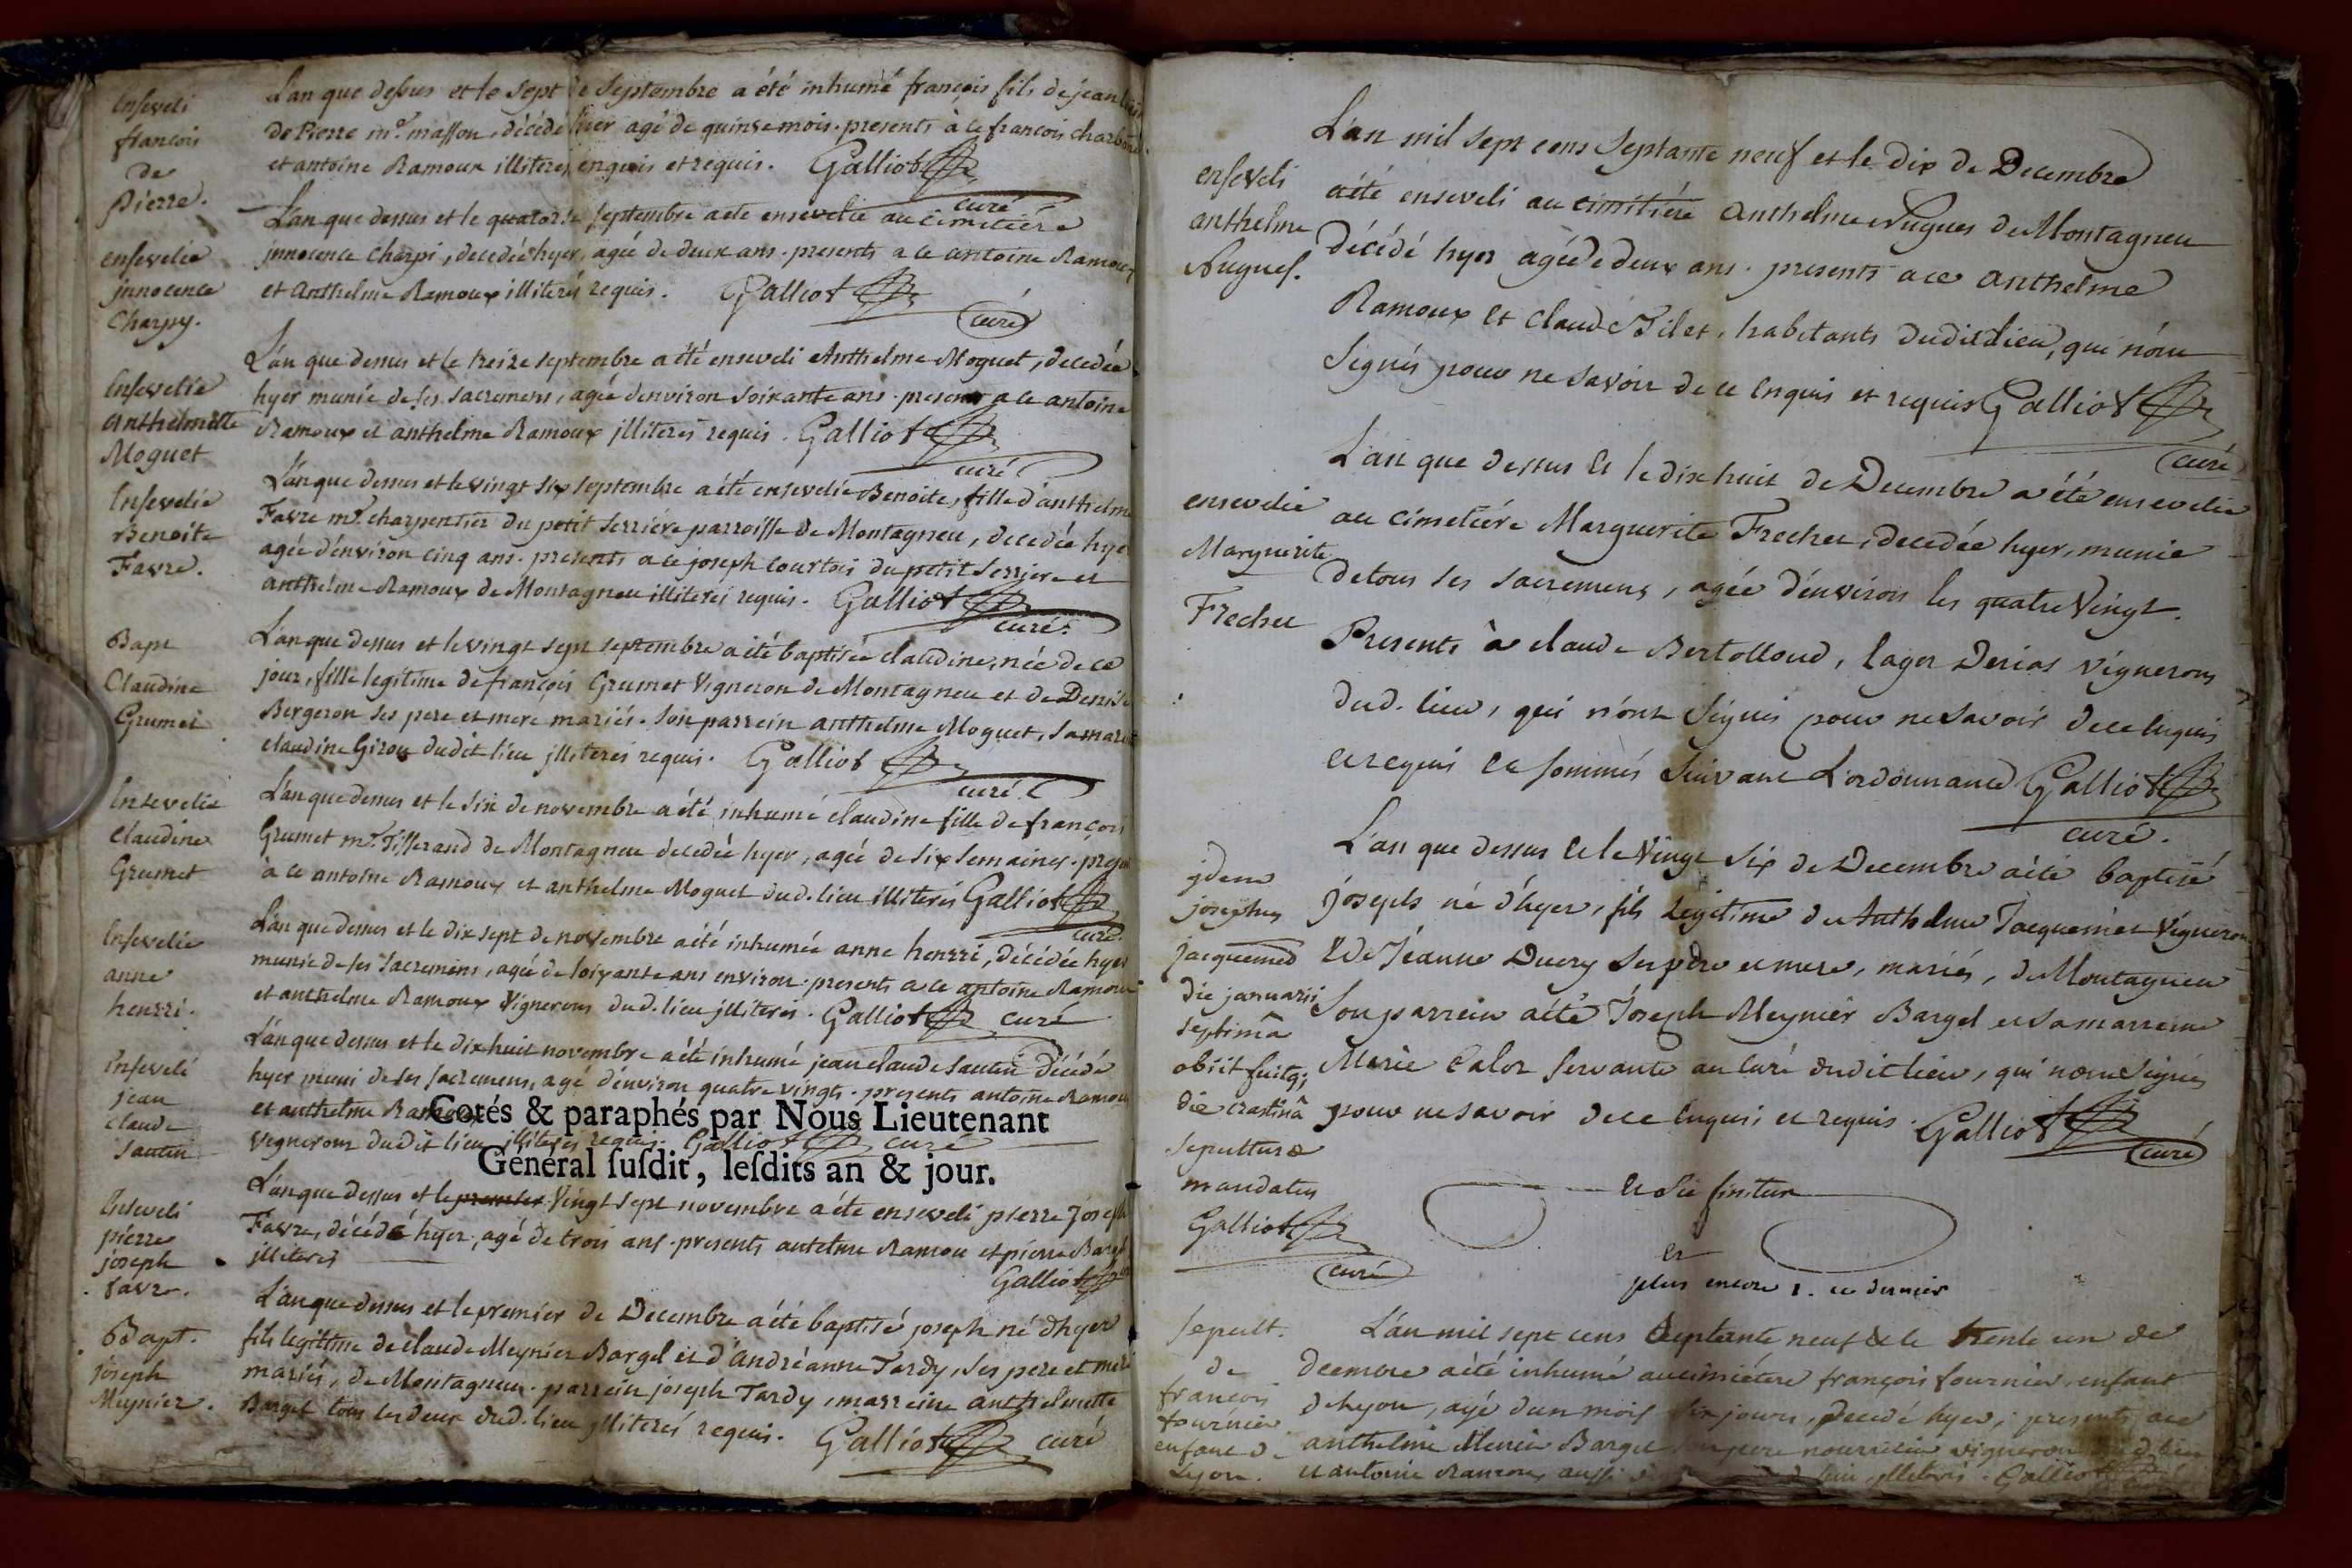 Enseveli
françois
de
Pierre.
L'an que dessus et le sept de Septembre a été inhumé françois fils de jean
De Pierre m.e masson, décédé hier agé de quinse mois. presents à ce françois
et antoine Ramoux illiterés enquis et requis. Galliot
curé
ensevelie
jnnocence
Charpy.
L'an que dessus et le quatorse septembre a eté ensevelie au cimetiére
jnnocence Charpi, decedée hyer, agée de deux ans. presents a ce antoine Ramoux
et Anthelme Ramoux illiterés requis. Galliot
curé
Ensevelie
Anthelmette
Moguet
L'an que dessus et le treize septembre a été enseveli Anthelme Moguet, decedée
hyer munie de ses sacremens, agée denviron soixante ans. presents a ce antoine
Ramoux et anthelme Ramoux jlliterés requis. Galliot
curé
Ensevelie
Benoite
Favre.
L'an que dessus et le vingt six septembre a été ensevelie Benoite, fille d'anthelme
Favre m.e charpentier du petit Serriére parroisse de Montagneu, decedée hyer
agée d'énviron cinq ans. presents a ce joseph Courtois du petit Serriere et
anthelme Ramoux de Montagneu illiterés requis. Galliot
curé.
Bapt
Claudine
Grumet
L'an que dessus et le vingt sept septembre a été baptisée claudine, née de ce
jour, fille legitime de françois Grumet Vigneron de Montagneu et de Denise
Bergeron ses pere et mere mariés. Son parrein anthelme Moguet, sa
claudine Girou dudit lieu jlliterés requis. Galliot
curé
Ensevelie
Claudine
Grumet
L'an que dessus et le six de novembre a été inhumé claudine fille de françois
Grumet m.e Tisserand de Montagneu decedée hyer, agée de six semaines.
à ce antoine Ramoux et anthelme Moguet dud. lieu illiterés Galliot
curé.
Ensevelie
anne
henrri.
L'an que dessus et le dix sept de novembre a été inhumée anne henrri, décédée hyer
munie de ses sacremens, agée de soixante ans environ. presents a ce antoine Ramoux
et anthelme Ramoux Vignerons dud. lieu jlliterés. Galliot curé
Enseveli
jean
claude
Sautin
L'an que dessus et le dix huit novembre a été inhumé jean claude Sautin décédé
hyer muni de ses sacremens, agé d'énviron quatre vingts. presents antoine Ramoux
et anthelme Ramoux
Cotés & paraphés par Nous Lieutenant
vignerons dudit lieu jlliterés requis. Galliot curé
Général suſdit, leſdits an & jour.
Enseveli
pierre
joseph
favre.
L'an que dessus et le premier Vingt sept novembre a été enseveli pierre joseph
Favre, décédé hyer, agé de trois ans. presents antelme Ramou et pierre
jlliterés
Galliot
Bapt.
joseph
Meynier.
L'an que dessus et le premier de Decembre a été baptisé joseph né d'hyer
fils legitime de claude Meynier Bargel et d'Andréanne Tardy, ses pere et mere
mariés, de Montagneu. parrein joseph Tardy, marreine anthelmette
Bargel tous les deux dud. lieu jlliterés requis. Galliot curé
enseveli
anthelme
Nugues.
L'an mil sept cens Septante neuf et le dix de Decembre
a été enseveli au cimitiére Anthelme Nugues de Montagneu
décédé hyer agé de deux ans. presents a ce Anthelme
Ramoux et Claude Filet, habitants dudit lieu, qui n'ont
signés pour ne savoir de ce enquis et requis Galliot
curé
ensevelie
Marguerite
Frecher
L'an que dessus et le dix huit de Decembre a été ensevelie
au cimetiére Marguerite Frecher, decedée hyer, munie
de tous ses sacremens, agée d'énviron les quatre Vingt.
Presents à claude Bertolloud, Vignerons
dud. lieu, qui n'ont signés pour ne savoir de ce enquis
et requis et sommés suivant L'ordonnance Galliot
curé.
jdem
josephus
jacquemed
die januarii
septimâ
obiit fuitq;
die crastinâ
sepulturæ
mandatus
Galliot
curé
L'an que dessus et le Vingt six de Decembre a été baptisé
joseph né d'hyer, fils legitime de Anthelme Jacquemet Vigneron
& de Jeanne Ducry ses pére et mere, mariés, de Montagneu
Son parrein a été Joseph Meynier Bargel et sa marreine
Marie Calor servante au curé dudit lieu, qui n'ont signés
pour ne savoir de ce enquis et requis. Galliot
curé
et sic finitur
et
plus encore 1. ce dernier
Sepult.
de
françois
fournier
enfant de
Lyon.
L'an mil sept cens Septante neuf & le trente un de
decembre a été inhumé au cimiétere françois fournier, enfant
de lyon, agé d'un mois six jours, decedé hyer, presents a ce
anthelme Bargel pere nourricier vigneron
et antoine Ramoux, aussi lieu, jlliterés. Galliot